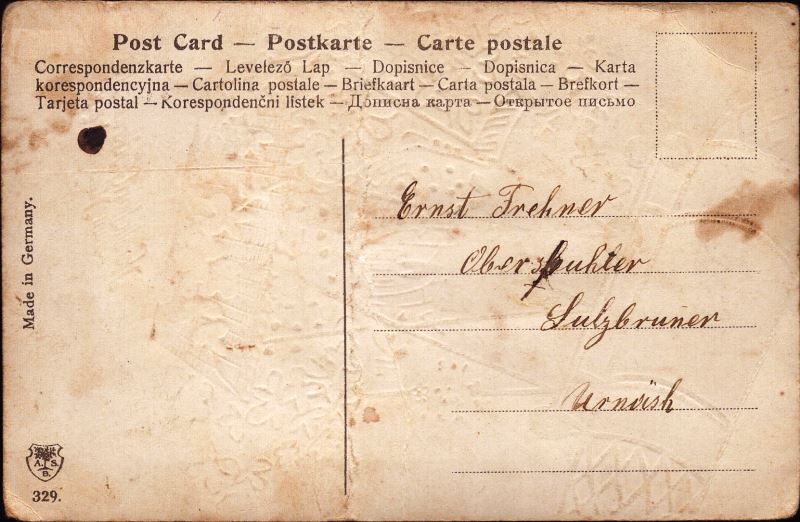 Post Card — Postkarte — Carte postale
Correspondenzkarte — Levelező Lap — Dopisnice — Dopisnica — Karta
korespondencyjna — Cartolina postale — Briefkaart — Carta postala — Brefkort —
Tarjeta postal — Korespondenčni listek — Дописна карта — Открытое письмо
Made in Germany.
Ernst Frehner
Sulzbruner
Urnäsh
A. S.
B.
329.